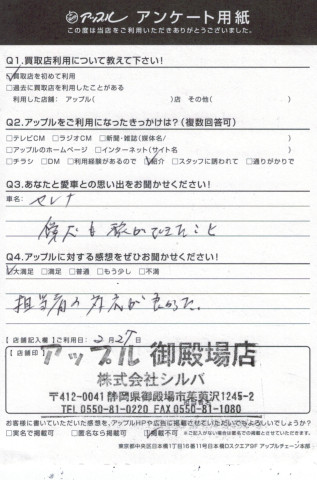 アップル アンケート用紙
この度は当店をご利用いただきありがとうございました。
Q1.買取店利用について教えて下さい!
買取店を初めて利用
□過去に買取店を利用したことがある
利用した店舗: アップル( )店 その他( )
Q2.アップルをご利用になったきっかけは?(複数回答可)
□テレビCM □ラジオCM □新聞・雑誌(媒体名/ )
□アップルのホームページ □インターネット(サイト名 )
□チラシ □DM □利用経験があるので 紹介 □スタッフに誘われて □通りがかりで
Q3.あなたと愛車との思い出をお聞かせください!
車名: セレナ
旅ができたこと
Q4.アップルに対する感想をぜひお聞かせください!
大満足 □満足 □普通 □もう少し □不満
担当者の対応が良かった。
【店舗記入欄】ご利用日: 2月27日
【店舗印】
アップル 御殿場店
株式会社シルバ
〒412-0041 静岡県御殿場市茱萸沢1245-2
TEL 0550-81-0220 FAX 0550-81-1080
お客様に書いていただいた感想を、アップルHPや広告に掲載させていただいてもよろしいでしょうか?
□実名で掲載可 □匿名なら掲載可 掲載不可 ※ご記入がない場合は匿名での掲載とさせていただきます。
東京都中央区日本橋1丁目16番11号日本橋DスクエアGF アップルチェーン本部